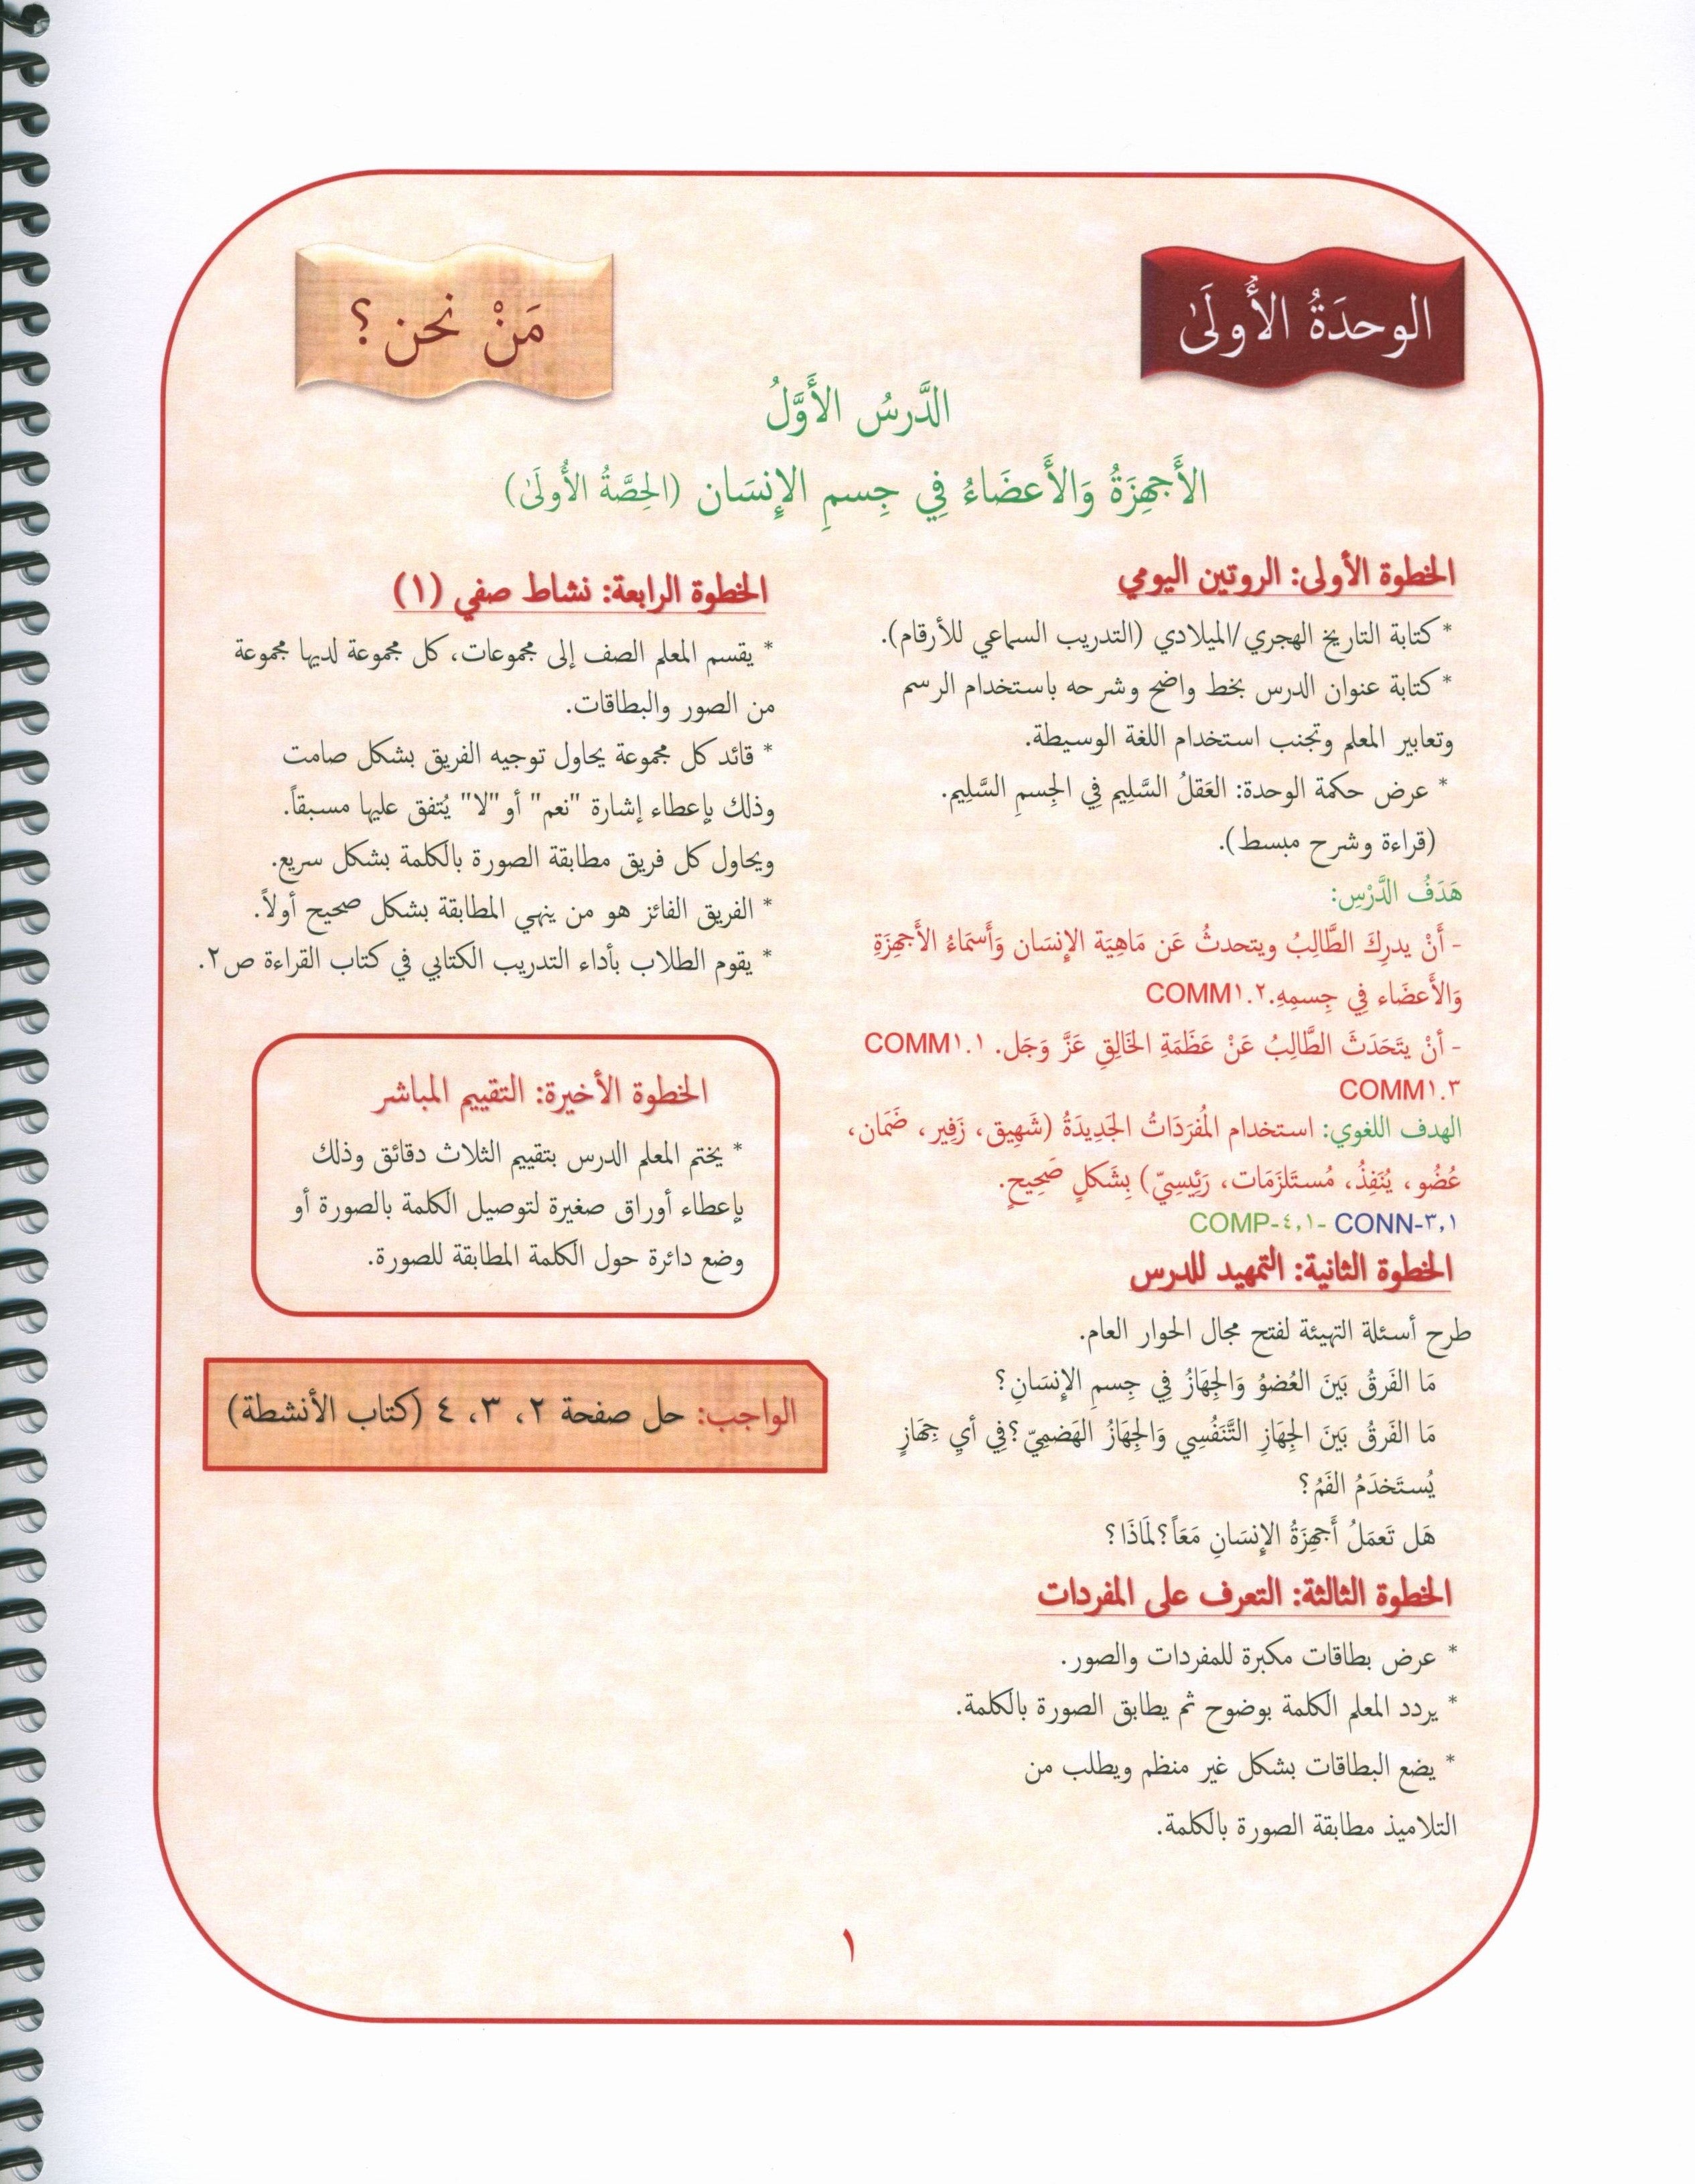 الوحدَةُ الأُولَىٰ
مَنْ نحن؟
الدَّرسُ الأَوَّلُ
الأَجهِزَةُ وَالأَعضَاءُ فِي جِسمِ الإِنسَان (الحِصَّةُ الأُولَىٰ)
الخطوة الأولى: الروتين اليومي
* كتابة التاريخ الهجري/الميلادي (التدريب السماعي للأرقام).
* كتابة عنوان الدرس بخط واضح وشرحه باستخدام الرسم
وتعابير المعلم وتجنب استخدام اللغة الوسيطة.
* عرض حكمة الوحدة: العَقلُ السَّلِيم فِي الجِسمِ السَّلِيم.
(قراءة وشرح مبسط).
هَدَفُ الدَّرْسِ:
- أَنْ يدرِكَ الطَّالِبُ ويتحدثُ عَن مَاهِيَة الإِنسَان وَأَسمَاءُ الأَجهِزَةِ
وَالأَعضَاء فِي جِسمِهِ.COMM١.٢
- أنْ يتَحَدَثَ الطَّالِبُ عَنْ عَظَمَةِ الخَالِقِ عَزَّ وَجَل. COMM١.١
COMM١.٣
الهدف اللغوي: استخدام المُفرَدَاتُ الجَدِيدَةُ (شَهِيق، زَفِير، ضَمَان،
عُضُو، يُنَفِذُ، مُستَلزَمَات، رَئِيسِيّ) بِشَكلٍ صَحِيحٍ.
COMP-٤,١- CONN-٣,١
الخطوة الثانية: التمهيد للدرس
طرح أسئلة التهيئة لفتح مجال الحوار العام.
مَا الفَرقُ بَينَ العُضوُ وَالجِهَازُ فِي جِسمِ الإِنسَانِ؟
مَا الفَرقُ بَينَ الجِهَازِ التَّنَفُسِي وَالجِهَازُ الهَضمِيّ؟فِي أيِ جِهَازٍ
يُستَخدَمُ الفَمُ؟
هَل تَعمَلُ أَجهِزَةُ الإِنسَانِ مَعَاً؟لمَاذَا؟
الخطوة الثالثة: التعرف على المفردات
* عرض بطاقات مكبرة للمفردات والصور.
* يردد المعلم الكلمة بوضوح ثم يطابق الصورة بالكلمة.
* يضع البطاقات بشكل غير منظم ويطلب من
التلاميذ مطابقة الصورة بالكلمة.
الخطوة الرابعة: نشاط صفي (١)
* يقسم المعلم الصف إلى مجموعات، كل مجموعة لديها مجموعة
من الصور والبطاقات.
* قائد كل مجموعة يحاول توجيه الفريق بشكل صامت
وذلك بإعطاء إشارة "نعم" أو "لا" يُتفق عليها مسبقاً.
ويحاول كل فريق مطابقة الصورة بالكلمة بشكل سريع.
* الفريق الفائز هو من ينهي المطابقة بشكل صحيح أولاً.
* يقوم الطلاب بأداء التدريب الكتابي في كتاب القراءة ص٢.
الخطوة الأخيرة: التقييم المباشر
* يختم المعلم الدرس بتقييم الثلاث دقائق وذلك
بإعطاء أوراق صغيرة لتوصيل الكلمة بالصورة أو
وضع دائرة حول الكلمة المطابقة للصورة.
الواجب: حل صفحة ٢، ٣، ٤ (كتاب الأنشطة)
١